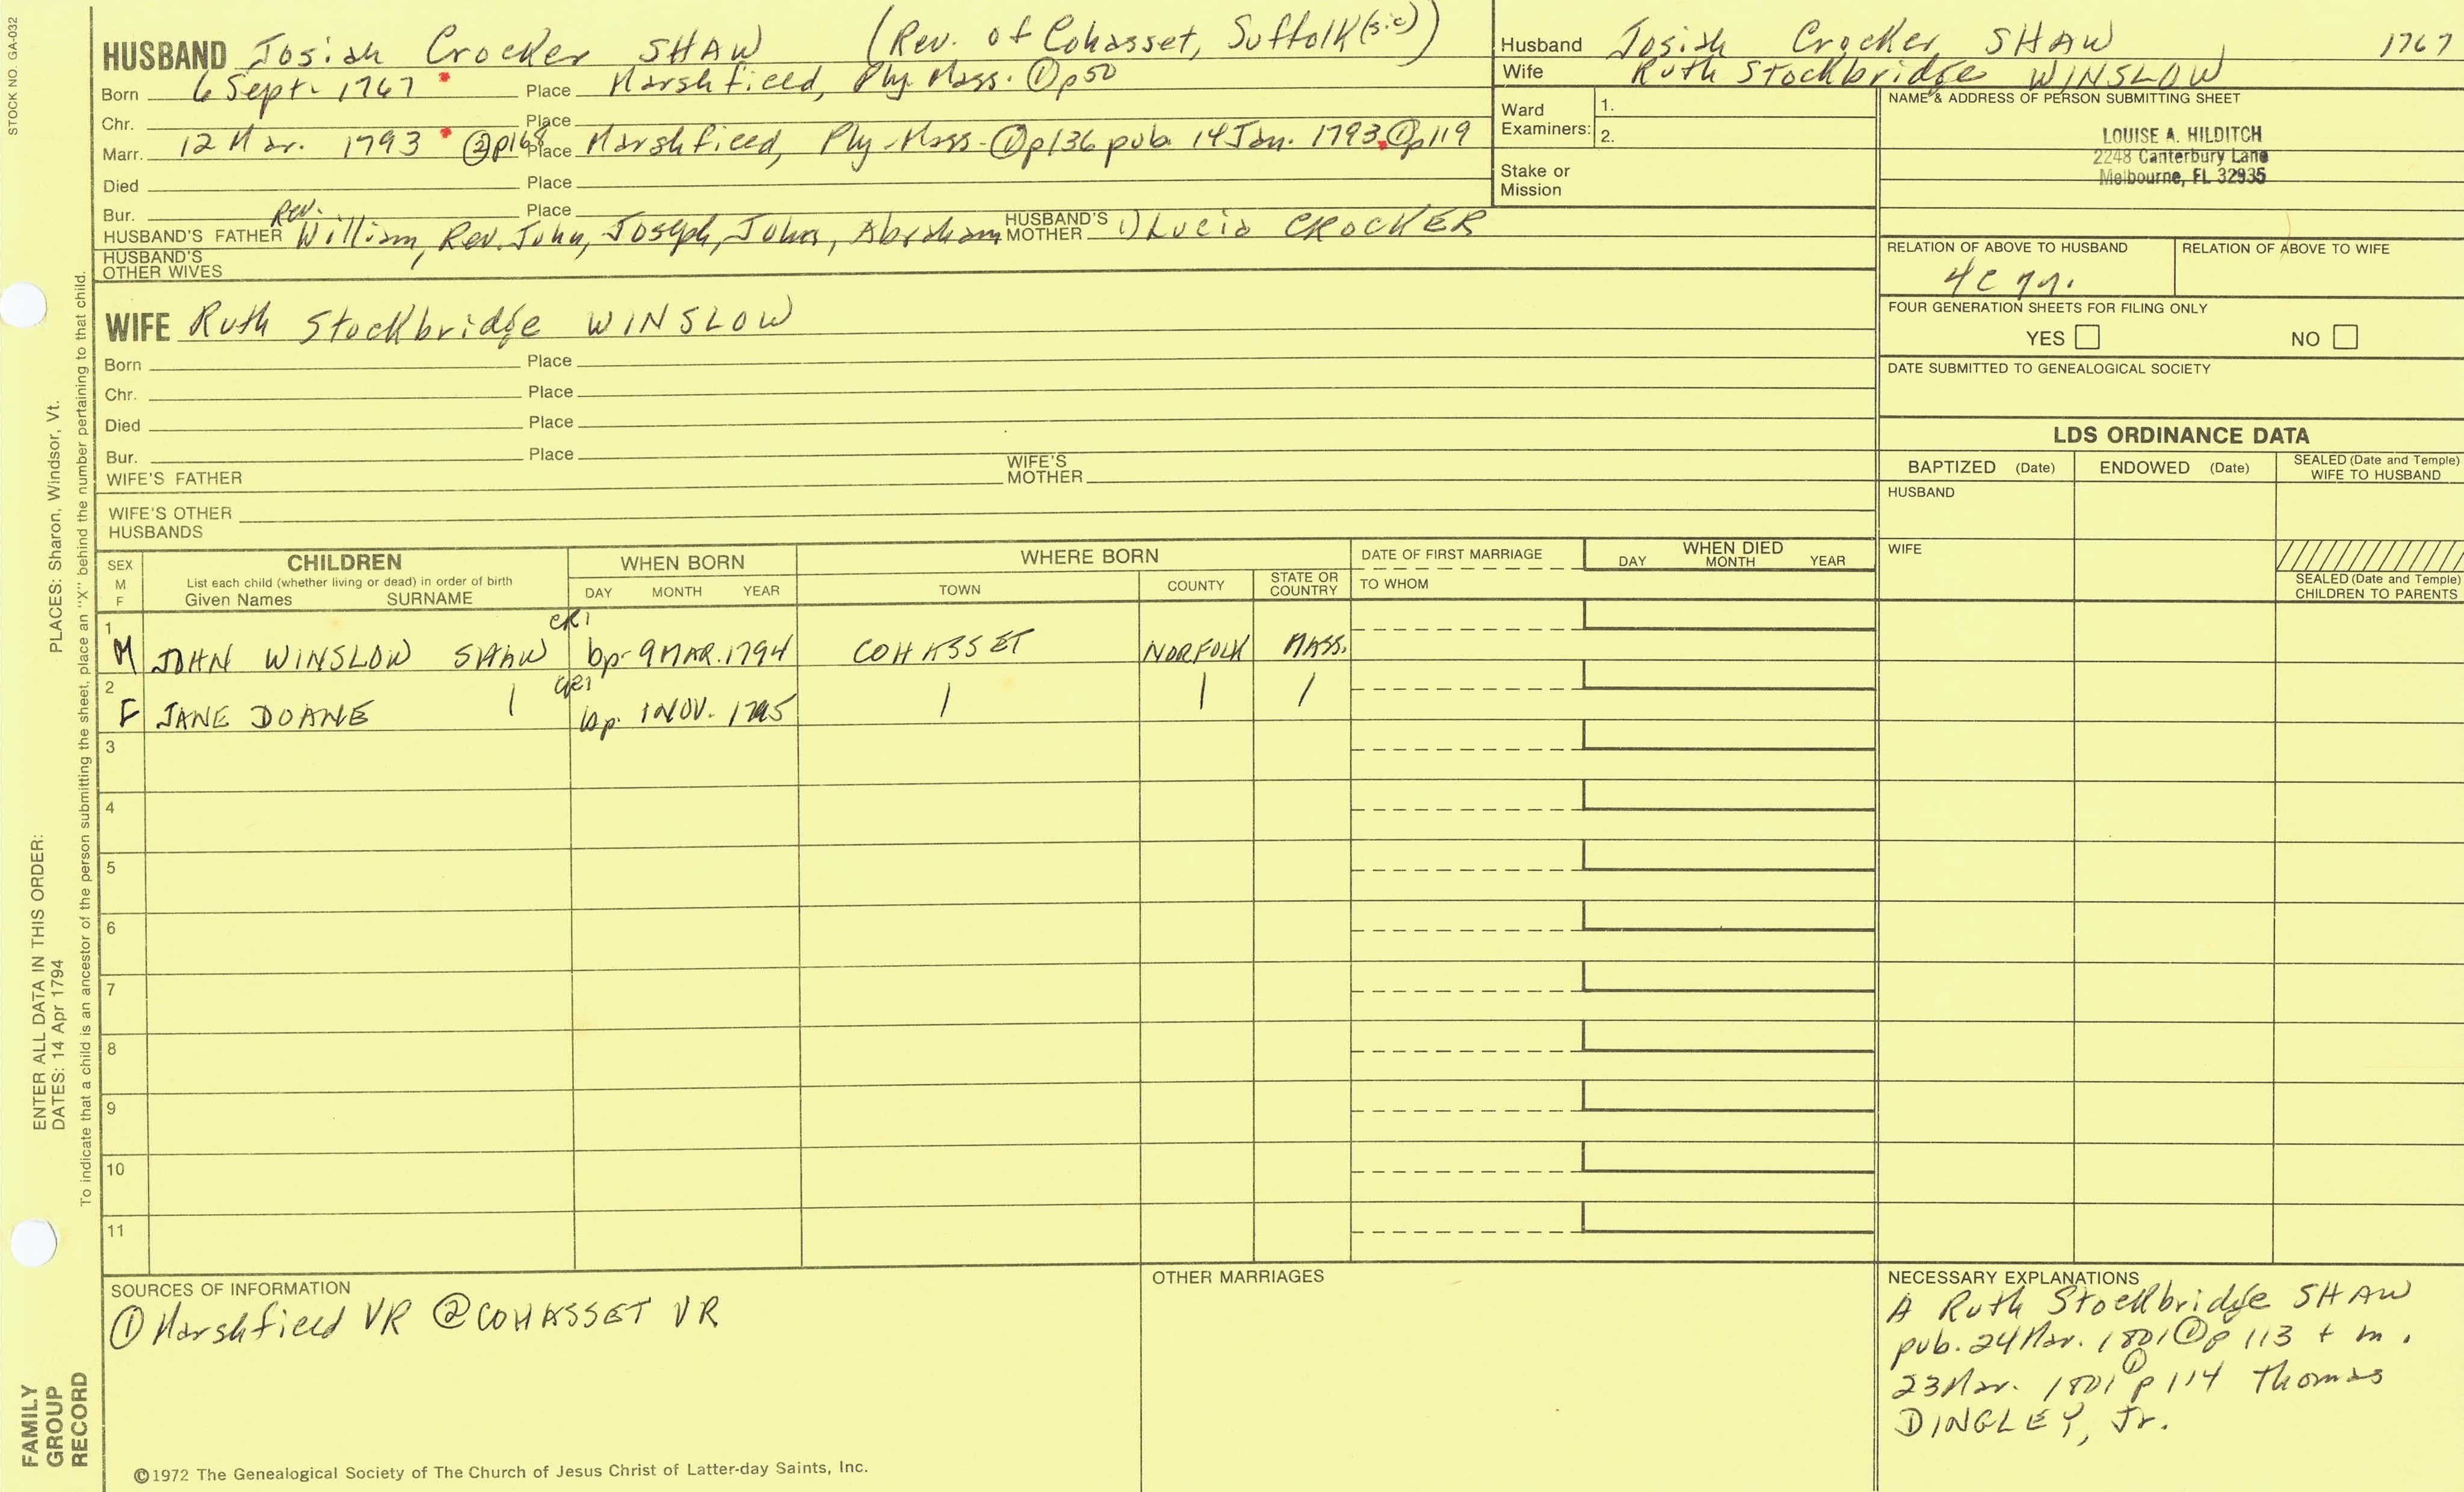 STOCK NO. GA-032
HUSBAND Josiah Crocker SHAW (Rev. of Cohasset, Suffolk (sic))
Born 6 Sept. 1767 Place Marshfield, Ply. Mass. ① p50
Chr. Place
Marr. 12 Mar. 1793 ② p168 Place Marshfield, Ply. Mass. ① p136 pub. 14 Jan. 1793 ① p119
Died Place
Bur. Place
HUSBAND'S FATHER Rev. William, Rev. John, Joseph, John, Abraham HUSBAND'S MOTHER 1) Lucia CROCKER
HUSBAND'S OTHER WIVES
Husband Josiah Crocker SHAW 1767
Wife Ruth Stockbridge WINSLOW
Ward Examiners: 1.
2.
Stake or Mission
NAME & ADDRESS OF PERSON SUBMITTING SHEET
LOUISE A. HILDITCH
2248 Canterbury Lane
Melbourne, FL 32935
RELATION OF ABOVE TO HUSBAND RELATION OF ABOVE TO WIFE
FOUR GENERATION SHEETS FOR FILING ONLY
YES NO
DATE SUBMITTED TO GENEALOGICAL SOCIETY
WIFE Ruth Stockbridge WINSLOW
Born Place
Chr. Place
Died Place
Bur. Place
WIFE'S FATHER WIFE'S MOTHER
WIFE'S OTHER HUSBANDS
LDS ORDINANCE DATA
BAPTIZED (Date) ENDOWED (Date) SEALED (Date and Temple) WIFE TO HUSBAND
HUSBAND
WIFE
SEALED (Date and Temple) CHILDREN TO PARENTS
SEX M F
CHILDREN
List each child (whether living or dead) in order of birth
Given Names SURNAME
WHEN BORN
DAY MONTH YEAR
WHERE BORN
TOWN COUNTY STATE OR COUNTRY
DATE OF FIRST MARRIAGE
TO WHOM
WHEN DIED
DAY MONTH YEAR
1 M JOHN WINSLOW SHAW CR1 bp. 9 MAR. 1794 COHASSET NORFOLK MASS.
2 F JANE DOANE CR1 bp. 1 NOV. 1795
3
4
5
6
7
8
9
10
11
SOURCES OF INFORMATION
① Marshfield VR ② COHASSET VR
OTHER MARRIAGES
NECESSARY EXPLANATIONS
A Ruth Stockbridge SHAW
pub. 24 Mar. 1801 ① p 113 + m.
23 Mar. 1801 ① p 114 Thomas
DINGLEY, Jr.
©1972 The Genealogical Society of The Church of Jesus Christ of Latter-day Saints, Inc.
FAMILY GROUP RECORD
ENTER ALL DATA IN THIS ORDER:
DATES: 14 Apr 1794 PLACES: Sharon, Windsor, Vt.
To indicate that a child is an ancestor of the person submitting the sheet, place an "X" behind the number pertaining to that child.